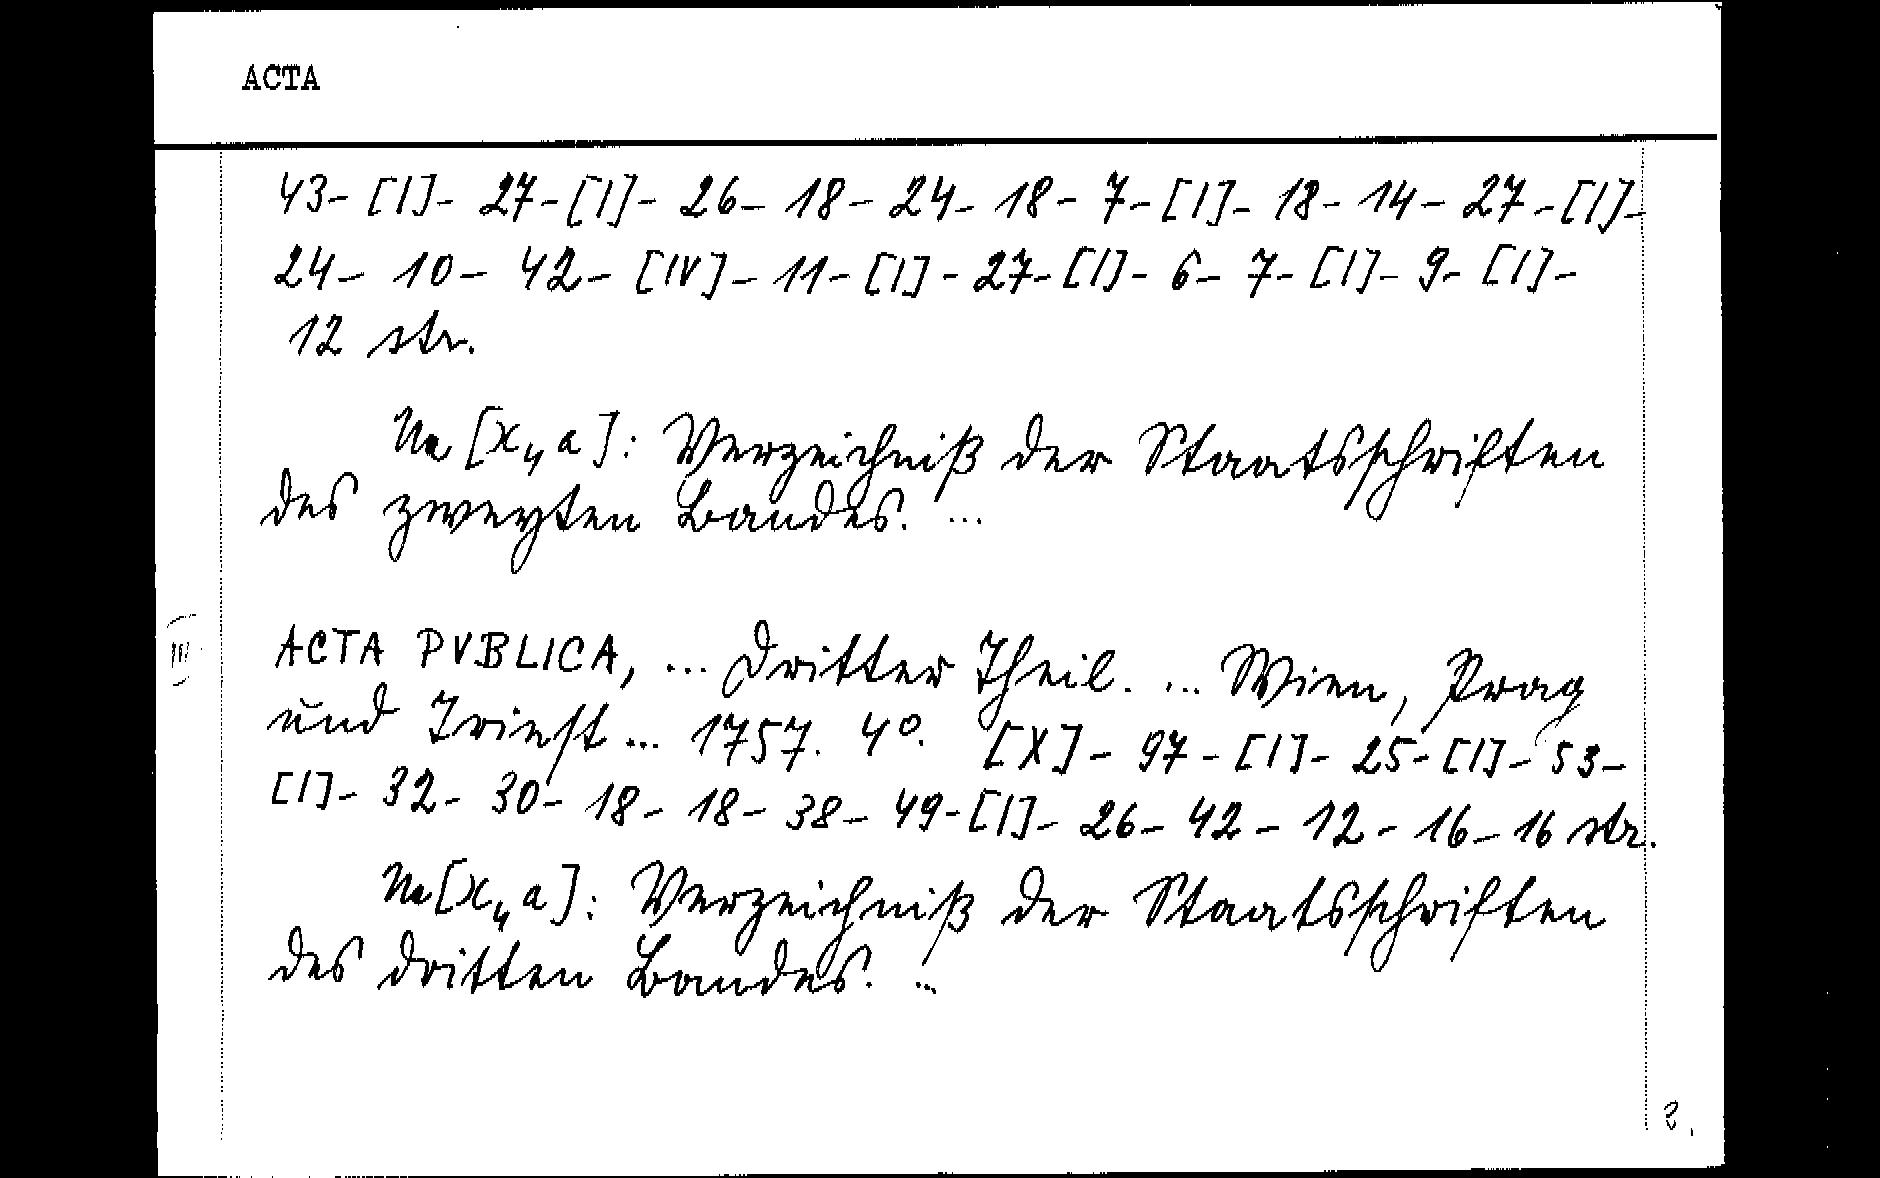 ACTA
43- [I]- 27-[I]- 26- 18- 24- 18- 7-[I]- 18- 14- 27-[I]-
24- 10- 42- [IV]- 11-[I]- 27-[I]- 6- 7-[I]- 9-[I]-
12 str.
Na [x„a]: Verzeichniß der Staatsschriften
des zweyten Bandes. ...
III
ACTA PVBLICA, ... Dritter Theil. ... Wien, Prag
und Triest ... 1757. 4°. [X]- 97-[I]- 25-[I]- 53-
[I]- 32- 30- 18- 18- 38- 49-[I]- 26- 42- 12- 16- 16 str.
Na [x„a]: Verzeichniß der Staatsschriften
des dritten Bandes. ...
2.